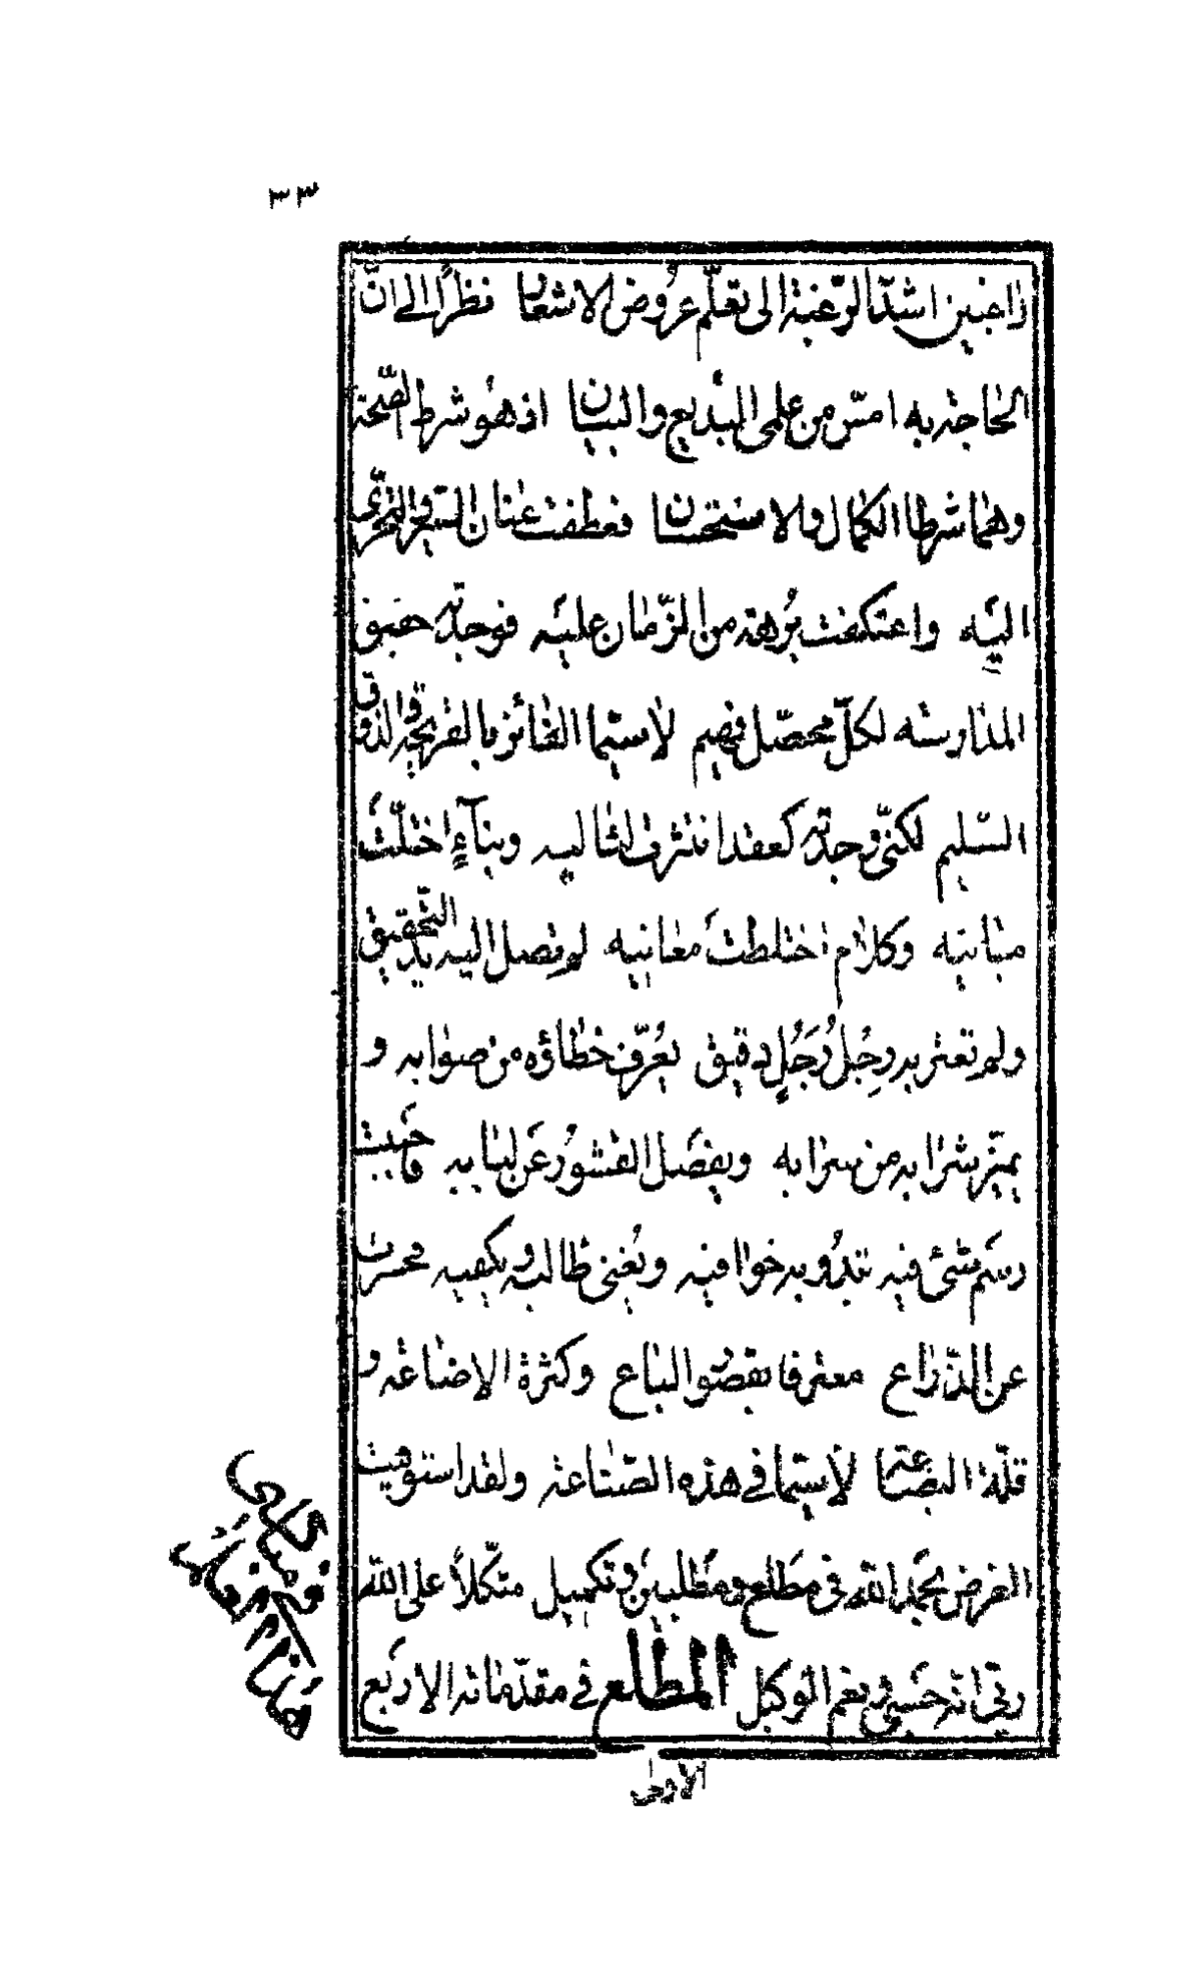 ٣٣
راغبين اشدّ الرّغبة الى تعلّم عروض الاشعار نظرًا الى انّ
الحاجة به امسّ من علمى البديع والبيان اذ هو شرط الصّحة
وهما شرطا الكمال والاستحسان فعطفت عنان السّير والتحرّى
اليه واعتكفت بُرهة من الزّمان عليه فوجدته حقيق
المدارسه لكلّ محصّل فهيم لاسيّما الفائز بالقريحة والذوق
السّليم لكنّى وجدته كعقد انتثرت لئاليه وبناءٍ اختلّت
مبانيه وكلام اختلطت معانيه لم تصل اليه يد التّحقيق
ولم تعثر به رِجُل رَجُلٍ دقيق يعُرّف خطاؤه من صوابه و
يميّز شرابه من سرابه ويفصَل القشور عَن لبابه فاحببت
رسم شئ فيه تبدُو به خوافيه ويُغنى طالبه ويكفيه محسرا
عن الذّراع معترفا بقصُو الباع وكثرة الاضاعة و
قلّة البضاعة لاسيّما فى هذه الصّناعة ولقد استوفيت
الغرض بحمد الله فى مطلع ومطلبين وتكميل متكّلاً على الله
ربّى انه حَسبى ونعم الوكيل المطلع فى مقدّماته الاربع
الاولى